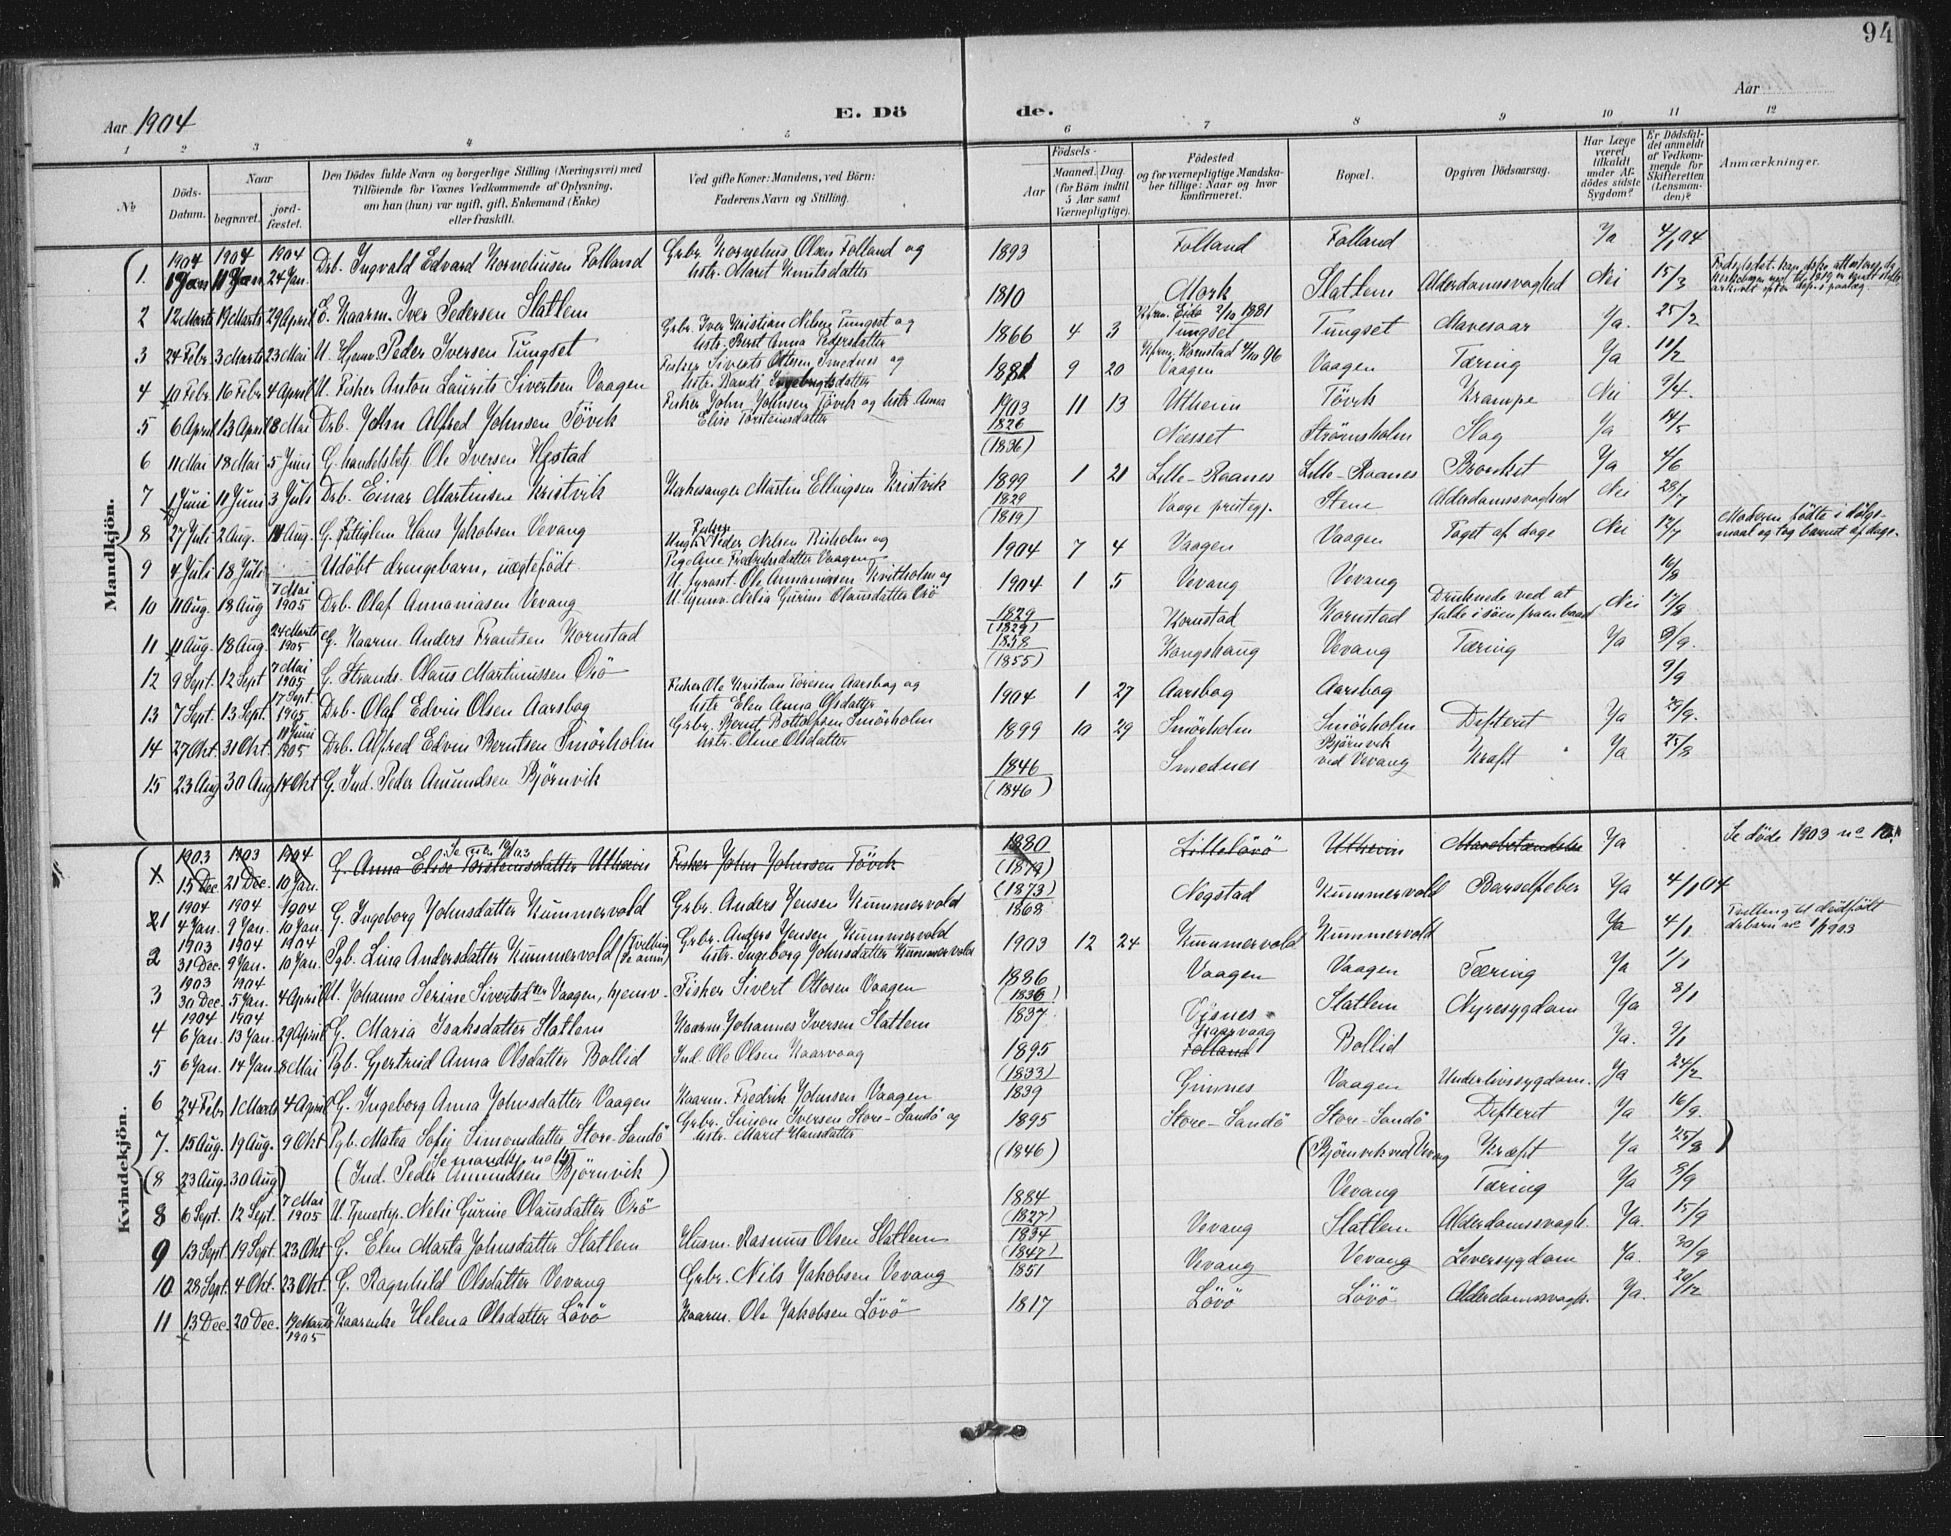 94
Aar 1904 E. Dö de. Aar
1 2 3 4 5 6 7 8 9 10 11 12
No Döds-Datum. Naar begravet. jord-fæstet. Den Dödes fulde Navn og borgerlige Stilling (Næringsvei) med Tilföiende for Voxnes Vedkommende af Oplysning, om han (hun) var ugift, gift, Enkemand (Enke) eller fraskilt. Ved gifte Koner: Mandens, ved Börn: Faderens Navn og Stilling. Födsels- Aar Maaned. Dag. (for Börn indtil 5 Aar samt Værnepligtige). Födested og for værnepligtige Mandskaber tillige: Naar og hvor konfirmeret. Bopæl. Opgiven Dödsaarsag. Har Læge været tilkaldt under Afdödes sidste Sygdom? Er Dödsfaldet anmeldt af Vedkommende for Skifteretten (Lensmanden)? Anmærkninger.
Mandkjön.
1904 1904 1904
1. Jan Jan 24 Jan. Drb. Ingvald Edvard Korneliusen Folland Grbr. Kornelius Olsen Folland og hstr. Marit Knutsdatter 1893 Folland Folland Ja 4/1 04
2 12 Marts 19 Marts 29 April E. Kaarm. Iver Pedersen Slatlem 1810 Mork Slatlem Alderdomssvaghed Nei 15/3
3 24 Febr. 3 Marts 23 Mai U. Hemv. Peder Iversen Tungset Grbr. Iver Kristian Nilsen Tungset og hstr. Berit Anna Pedersdatter 1866 4 3 Kfrm. Eide 2/10 1881 Tungset Tungset Mavesaar Ja. 25/2
4 10 Febr. 16 Febr. 4 April U. Fisker Anton Laurits Sivertsen Vaagen Fisker Siverts Ottesen Smednes og hstr. Randi Ingebrigtsdatter 1881 9 20 Kfrm. Kornstad 4/10 96 Vaagen Vaagen Tæring Ja 11/2
5 6 April 13 April 8 Mai Drb. John Alfred Johnsen Tövik Fisker John Johnsen Tövik og hstr. Anna Elise Torsteinsdatter 1903 11 13 Utheim Tövik Krampe Nei 9/4.
6 11 Mai 18 Mai 5 Juni G. handelsbetj. Ole Iversen Hestad 1826 (1836) Næsset Strömsholm Slag Ja 14/5
7 1 Juni 11 Juni 3 Juli Drb. Einar Martinsen Kristvik Kirkesanger Martin Ellingsen Kristvik 1899 1 21 Lille-Raanes Lille-Raanes Bronkit Ja 4/6
8 27 Juli 2 Aug. 14 Aug. G. Fattiglem Hans Jakobsen Vevang 1829 (1819) Vaage prestegj. Stene Alderdomssvaghed Nei 28/7
9 4 Juli 18 Juli Udöbt drengebarn, uægtefödt. Ungk. Fisker Peder Nilsen Risholm og Pige Ane Fredriksdatter Vaagen 1904 7 4 Vaagen Vaagen Taget af dage Nei 12/7 Moderen födte i dölgsmaal og tog barnet af dage.
10 11 Aug. 18 Aug 7 Mai 1905 Drb. Olaf Annaniasen Vevang U. fyrasst. Ole Annaniassen Kvitholm og U. hjemv. Nelia Gurine Olausdatter Orö 1904 1 5 Vevang Vevang 16/8
11 11 Aug. 18 Aug. 24 Marts 1905 G. Kaarm. Anders Frantsen Kornstad 1829 (1829) Kornstad Kornstad Druknede ved at falde i söen fra en baad Nei 17/8
12 9 Sept. 12 Sept 7 Mai 1905 G. Strands. Olaus Martinussen Orö 1858 (1855) Kongshaug Vevang Tæring Ja 9/9.
13 7 Sept. 13 Sept. 17 Sept. 1905 Drb. Olaf Edvin Olsen Aarsbog Fisker Ole Kristian Toresen Aarsbog og hstr. Elen Anna Olsdatter 1904 1 27 Aarsbog Aarsbog 9/9
14 27 Okt. 31 Okt. 11 Juni 1905 Drb. Alfred Edvin Berntsen Smörholm Grbr. Bernt Bottolfsen Smörholm hstr. Oline Olsdatter 1899 10 29 Smörholm Smörholm Difterit Ja 29/9.
15 23 Aug 30 Aug 14 Okt G. Ind. Peder Amundsen Björnvik 1846 (1846) Smednes Björnvik ved Vevang Kræft Ja 25/8
Kvindekjön.
1903 1903 1904
X. 15 Dec 21 Dec. 10 Jan. G. Anna Elise Torsteinsdatter Utheim Fisker John Johnsen Tövik 1880 (1879) Lillelövö Utheim Ja Se döde 1903 no
1904 1904 1904
1 4 Jan. 9 Jan. 10 Jan. G. Ingeborg Johnsdatter Kummervold Grbr. Anders Jensen Kummervold (1873) 1868 Nogstad Kummervold Barselfeber Ja 4/1 04
1903 1904 1904
2 31 Dec. 9 Jan. 10 Jan. Pgb. Lina Andersdatter Kummervold (Tvilling Se anm) Grbr. Anders Jensen Kummervold hstr. Ingeborg Johnsdatter Kummervold 1903 12 24 Kummervold Kummervold Ja 4/1 Tvilling til dödfödt drbarn no 1/1903
1903 1904
3 30 Dec. 5 Jan. 4 April U. Johanne Serine Sivertsdtr Vaagen, hjemv. Fisker Sivert Ottesen Vaagen 1886 Vaagen Vaagen Tæring Ja 1/1
1904 1904
4 6 Jan. 13 Jan. 29 April G. Maria Isaksdatter Slatlem Kaarm. Johannes Iversen Slatlem (1836) 1837 Visnes Slatlem Nyresygdom Ja 8/1
5 6 Jan. 14 Jan. 8 Mai Pgb. Gjertrud Anna Olsdatter Bollid Ind. Ole Olsen Kaarvaag 1895 Folland Bollid Ja. 9/1
6 24 Febr 1 Marts 4 April G. Ingeborg Anna Johnsdatter Vaagen Kaarm. Fredrik Johnsen Vaagen (1833) 1839 Gimnes Vaagen Underlivssygdom. Ja 24/2
7. 15 Aug. 19 Aug. 9 Okt Pgb. Matea Sofie Simonsdatter Store-Sandö Grbr. Simon Iversen Store-Sandö og hstr. Marit Hansdatter 1895 Store-Sandö Store-Sandö Difterit Ja 16/9.
(8 23 Aug. 30 Aug) (Ind. Peder Amundsen Björnvik) Se mandkj. no 15 (1846) (Björnvik ved Vevang Kræft Ja 25/8)
8 6 Sept. 12 Sept. 7 Mai 1905 U. Tjenestep. Nelie Gurine Olausdatter Orö 1884 Vevang Tæring Ja 8/9
9 13 Sept. 19 Sept. 23 Okt G. Elen Marta Johnsdatter Slatlem Husm. Rasmus Olsen Slatlem (1827) 1834 Vevang Slatlem Alderdomssvagh. Ja. 15/9
10 28 Sept. 4 Okt. 23 Okt. G. Ragnhild Olsdatter Vevang Grbr. Nils Jakobsen Vevang (1847) 1851 Vevang Vevang Leversygdom Ja. 30/9
11 13 Dec. 20 Dec. 19 Marts 1905 Kaarenke Helena Olsdatter Lövö Kaarm. Ole Jakobsen Lövö 1817 Lövö Lövö Alderdomssvagh. Ja. 20/12